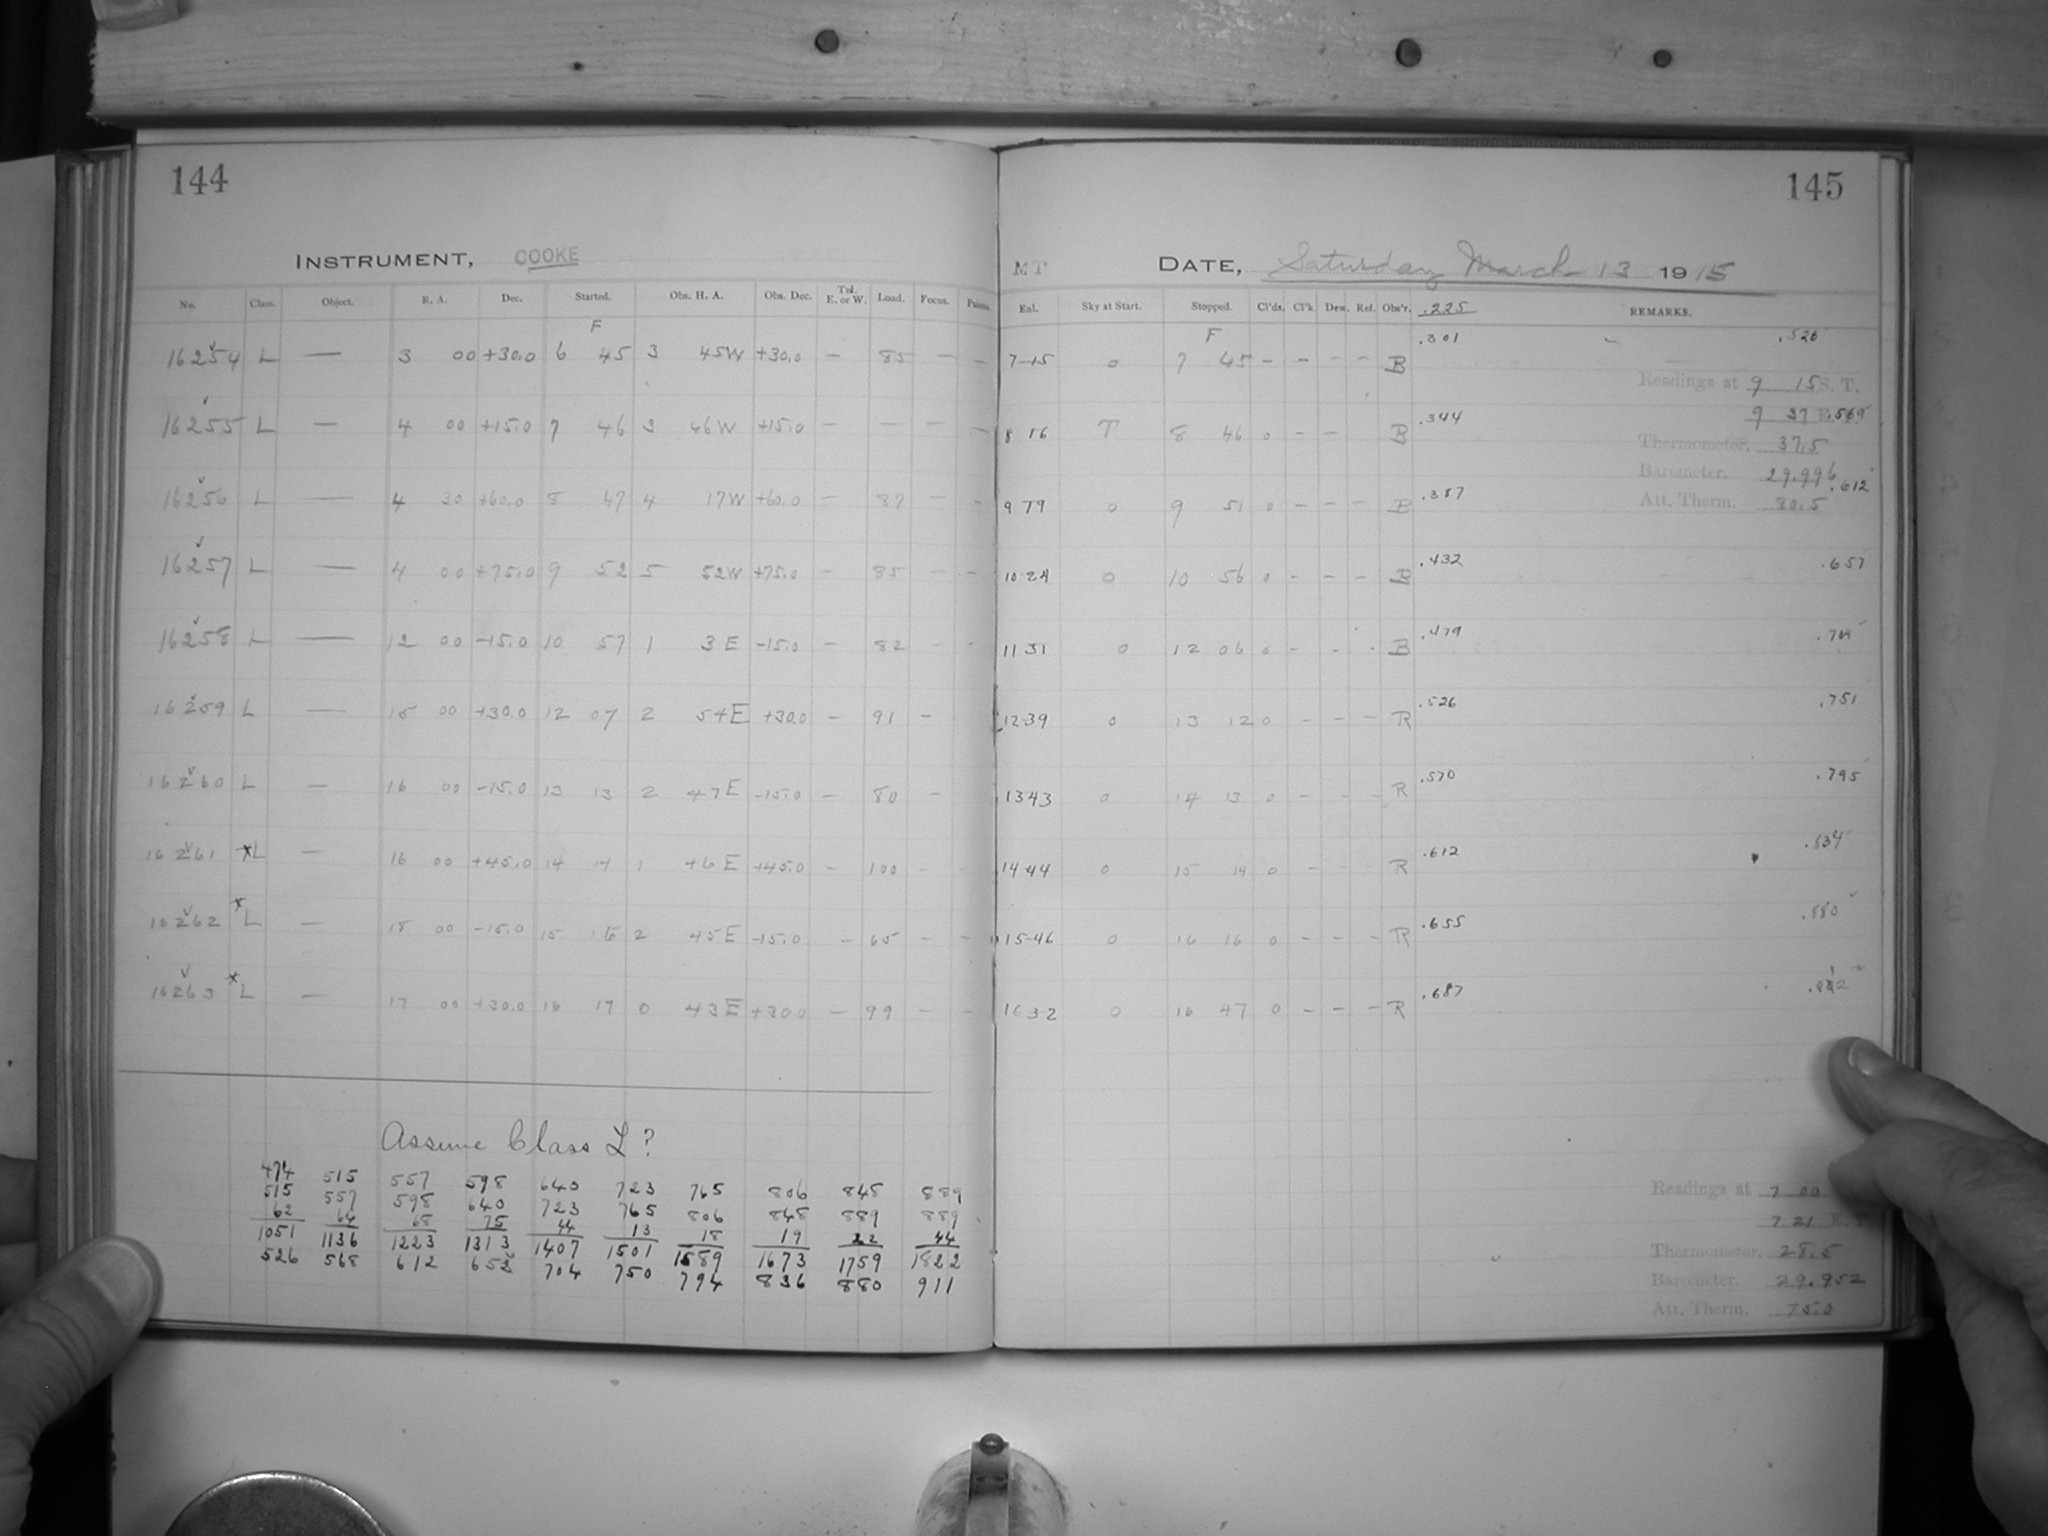 144
INSTRUMENT, COOKE
No. Class. Object. R. A. Dec. Started. Obs. H. A. Obs. Dec. Tel. E. or W. Load. Focus.
F
16254 L — 3 00 +30.0 6 45 3 45W +30.0 — 85 — —
16255 L — 4 00 +15.0 7 46 3 46W +15.0 — — — —
16256 L — 4 30 +60.0 8 47 4 17W +60.0 — 87 — —
16257 L — 4 00 +75.0 9 52 5 52W +75.0 — 85 — —
16258 L — 12 00 -15.0 10 57 1 3E -15.0 — 82 — —
16259 L — 15 00 +30.0 12 07 2 54E +30.0 — 91 —
16260 L — 16 00 -15.0 13 13 2 47E -15.0 — 80 —
16261 *L — 16 00 +45.0 14 14 1 46E +45.0 — 100 —
16262 *L — 18 00 -15.0 15 16 2 45E -15.0 — 65 — —
16263 *L — 17 00 +30.0 16 17 0 43E +30.0 — 99 — —
Assume Class L?
474 515 557 598 640 723 765 806 848 889
515 557 598 640 723 765 806 848 889 889
62 64 68 75 44 13 18 19 22 44
1051 1136 1223 1313 1407 1501 1589 1673 1759 1822
526 568 612 652 704 750 794 836 880 911
145
MT DATE, Saturday March 13 1915
Enl. Sky at Start. Stopped. Cl'ds. Cl'k. Dew. Ref. Obs'r. .225 REMARKS.
F
7-15 0 7 45 — — — — B .301 .526
Readings at 9 15 S. T.
9 37 .569
8 16 T 8 46 0 — — B .344
Thermometer. 37.5
Barometer. 29.996
9 19 0 9 51 0 — — — B .387 .612
Att. Therm. 80.5
10 24 0 10 56 0 — — — B .432 .657
11 31 0 12 06 0 - - - B .479 .704
12-39 0 13 12 0 — — — R .526 .751
13 43 0 14 13 0 — — — R .570 .795
14 44 0 15 14 0 — — — R .612 .834
15-46 0 16 16 0 — — — R .655 .880
16 32 0 16 47 0 — — — R .687
Readings at 7 00
7 21 E. T.
Thermometer. 28.5
Barometer. 29.952
Att. Therm. 75.0